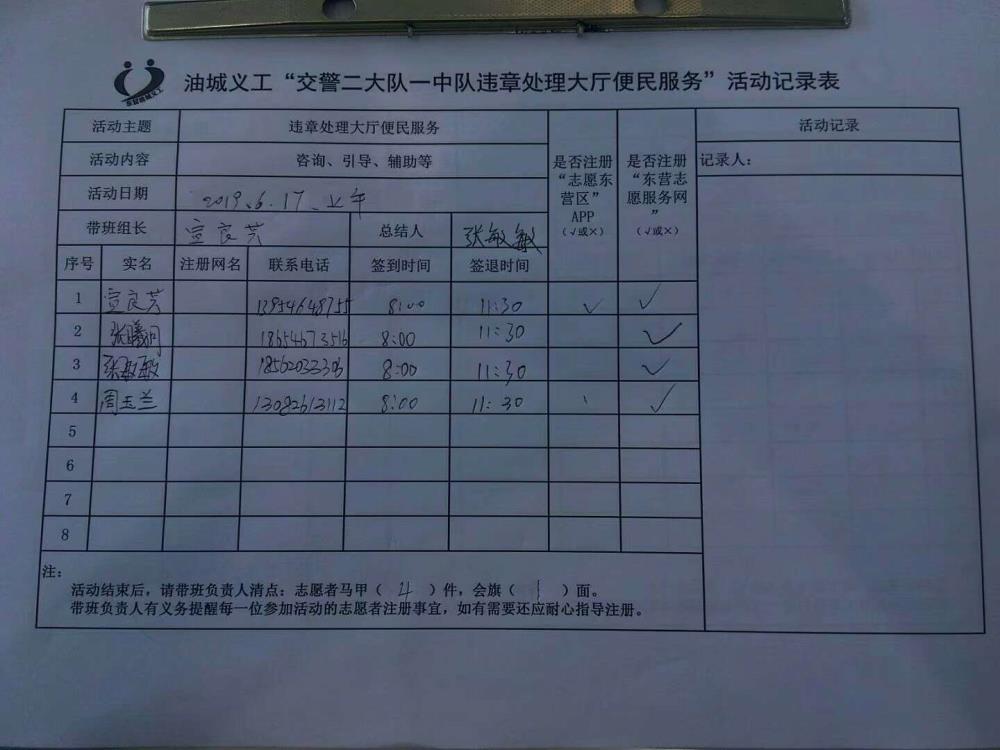 油城义工“交警二大队一中队违章处理大厅便民服务”活动记录表
活动主题 违章处理大厅便民服务 是否注册“志愿东营区”APP（√或×） 是否注册“东营志愿服务网”（√或×） 活动记录
活动内容 咨询、引导、辅助等 记录人：
活动日期 2019.6.17.上午
带班组长 宣良芳 总结人 张敏敏
序号 实名 注册网名 联系电话 签到时间 签退时间
1 宣良芳 13954648755 8:00 11:30 √ √
2 张曦 18654673516 8:00 11:30 √
3 张敏敏 8:00 11:30 √
4 周玉兰 13082613112 8:00 11:30 √
5
6
7
8
注：
活动结束后，请带班负责人清点：志愿者马甲（ 4 ）件，会旗（ 1 ）面。
带班负责人有义务提醒每一位参加活动的志愿者注册事宜，如有需要还应耐心指导注册。